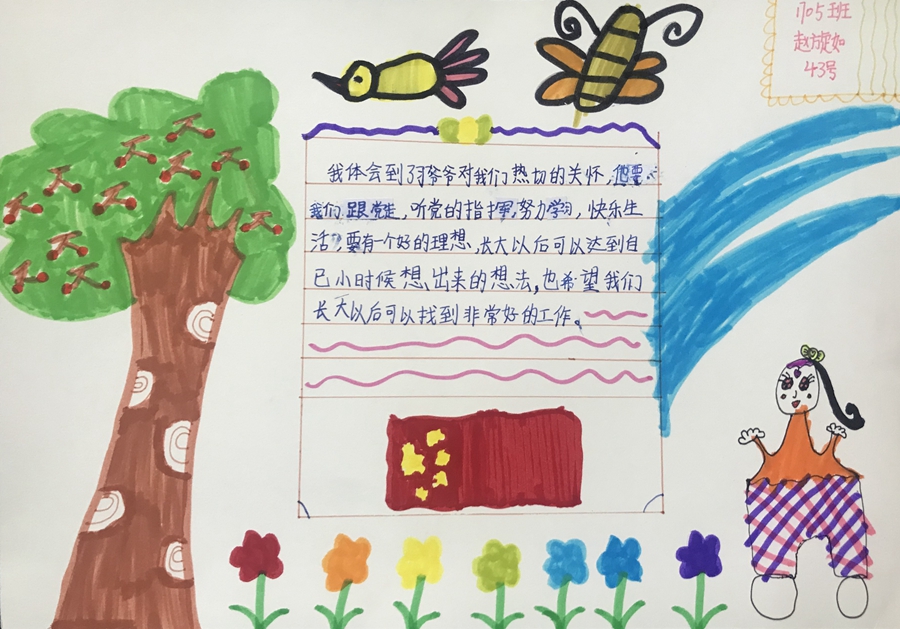 1705班
赵旋如
43号
我体会到了习爷爷对我们热切的关怀,他要
我们跟党走,听党的指挥,努力学习,快乐生
活,要有一个好的理想,长大以后可以达到自
己小时候想出来的想法,也希望我们
长大以后可以找到非常好的工作。